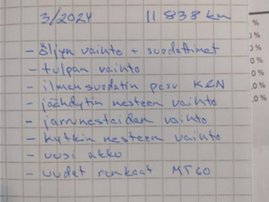 3/2024 11 838 km
- öljyn vaihto + suodattimet
- tulpan vaihto
- ilmansuodatin pesu K&N
- jäähdytin nesteen vaihto
- jarrunesteiden vaihto
- kytkin nesteen vaihto
- uusi akku
- uudet renkaat MT60
0%
0%
0%
0%